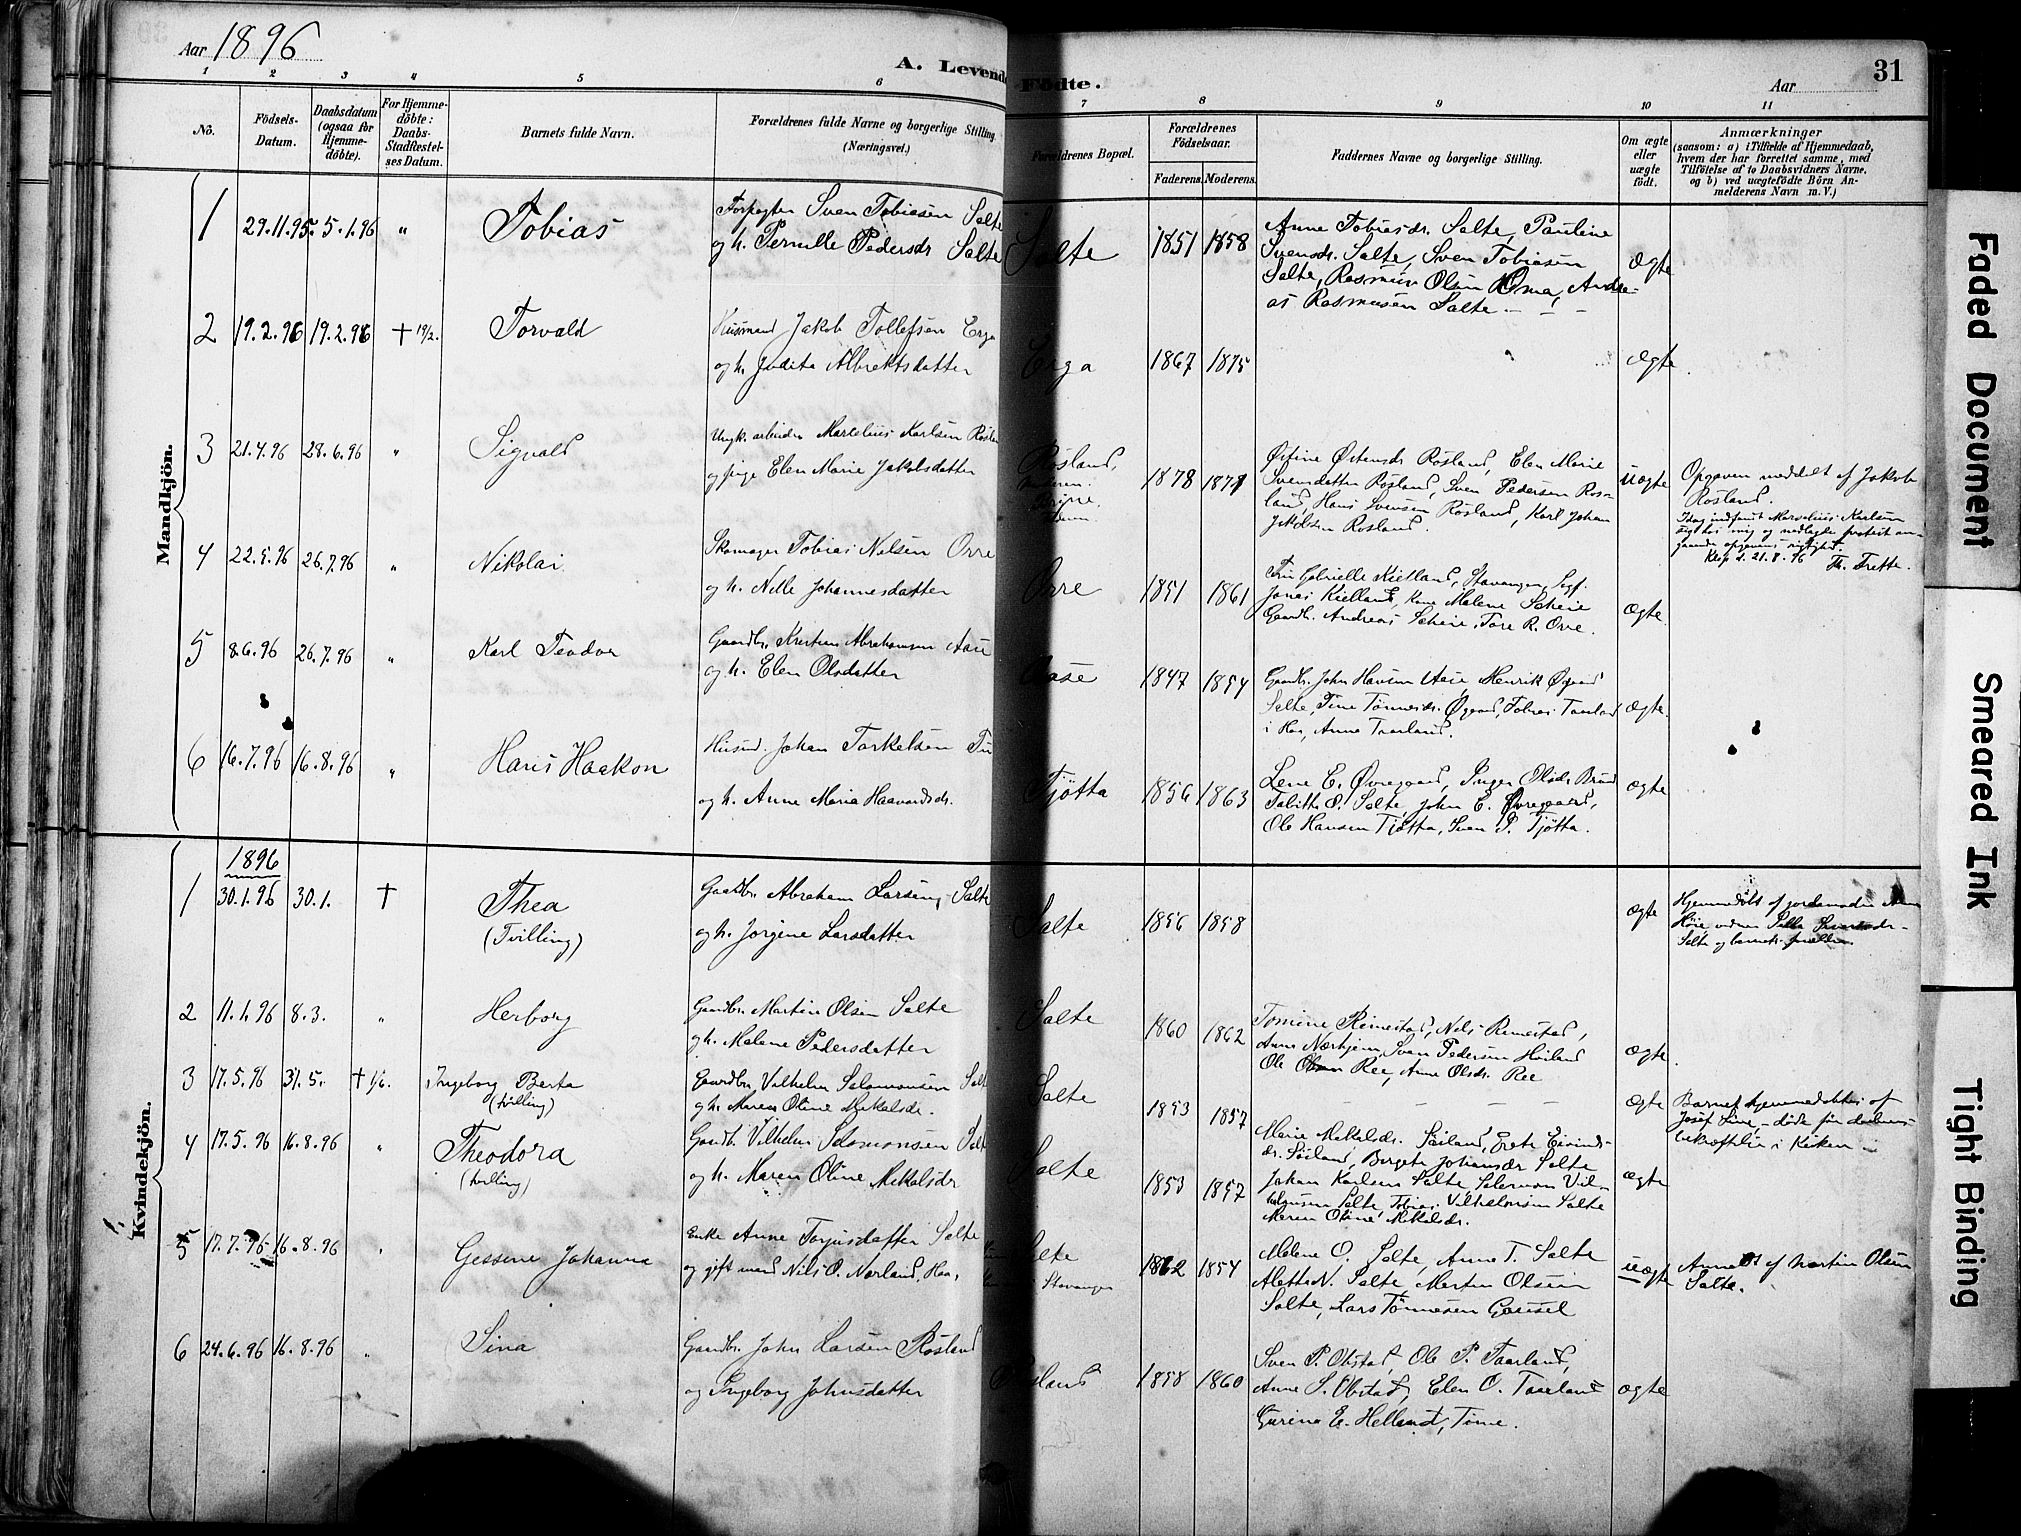 Aar 1896
A. Levende Fødte.
Aar
31
1
2
3
4
5
6
7
8
9
10
11
No.
Fødsels-
Datum.
Daabsdatum
(ogsaa for
Hjemme-
døbte).
For Hjemme-
døbte:
Daabs-
Stadfæstel-
ses Datum.
Barnets fulde Navn.
Forældrenes fulde Navne og borgerlige Stilling
(Næringsvei.)
Forældrenes Bopæl.
Forældrenes
Fødselsaar.
Faderens.
Moderens.
Faddernes Navne og borgerlige Stilling.
Om ægte
eller
uægte
født.
Anmærkninger
(saasom: a) i Tilfælde af Hjemmedaab,
hvem der har forrettet samme, med
Tilføielse af to Daabsvidners Navne,
og b) ved uægtefødte Børn An-
melderens Navn m. V.)
Mandkjön.
1 29.11.95. 5.1.96 " Tobias
Forpagter Sven Tobiasen Salte
og h. Pernille Pedersdr Salte
Salte 1851 1858
Anne Tobiasdr. Salte, Pauline
Svensdr. Salte, Sven Tobiasen
Salte, Rasmus Olsen Oma, Andre-
as Rasmusen Salte
Ægte
2 19.2.96 19.2.96 † 19/2. Torvald
Husmand Jakob Tollefsen Erga
og h. Judita Albrektsdatter
Erga 1867 1875
Ægte.
3 21.4.96 28.6.96 " Sigvald
Ungk. arbeider Marselius Karlsen
og pige Elen Marie Jakobsdatter
Røsland,
1878 1871
Østine Østensdr Røsland, Elen Marie
Svensdatter Røsland, Sven Pedersen Røs-
land, Hans Svensen Røsland, Karl Johan
Jakobsen Røsland.
Uægte
Opgaven meddelt af Jakob
Røsland.
Idag indfandt Marselius Karlsen
sig hos mig og nedlagde protest an-
gaaende opgavens rigtighed.
Klep d. 21.8.96 Th. Trette.
4 22.5.96 26.7.96 " Nikolai
Skomager Tobias Nelsen Orre
og h. Nelle Johannesdatter
Orre 1851 1861
Fru Gabrielle Kielland, Stavanger, Sogf.
Jonas Kielland, Kone Malene Scheie
Gaardb. Andreas Scheie, Tore R. Orre.
Ægte
5 8.6.96 26.7.96 " Karl Teodor
Gaardbr. Kristian Abrahamsen Aase
og h. Elen Olsdatter
Aase 1847 1854
Gaardbr. John Hansen Aase, Henrik Øgaard
Salte, Tine Tønnesdr. Øgaard, Tobias Taarland
i Haa, Anne Taarland.
Ægte.
6 16.7.96 16.8.96 " Hans Haakon
Husmd. Johan Torkelsen
og h. Anne Maria Haavardsdr.
Tjøtta 1856 1863
Lene E. Øvregaard, Inger Olsdr. Brunø
Tabitha O. Salte, John E. Øvregaard,
Ole Hansen Tjøtta, Sven P. Tjøtta.
Ægte
Kvindekjön.
1896
1 30.1.96 30.1. † Thea
(Tvilling)
Gaardbr. Abraham Larsen, Salte
og h. Jørgine Larsdatter
Salte 1856 1858
Ægte
Hjemmedøbt af jordemoder Anna
Høie, vidner
Salte og barnets forældre.
2 11.1.96 8.3. " Herborg
Gaardbr. Martin Olsen Salte
og h. Malene Pedersdatter
Salte 1860 1862
Tomine Rimestad, Nils Rimestad,
Anne Nærheim, Sven Pedersen Høiland
Ole Ree, Anne Olsdr. Ree
Ægte.
3 17.5.96 31.5. † 1/6. Ingeborg Berta
(tvilling)
Gaardbr. Vilhelm Salomonsen Salte
og h. Maren Oline Mikalsdr.
Salte 1853 1857
Ægte
Barnet hjemmedøbtes af
Josef Line, døde før daabens
bekræftelse i Kirken
4 17.5.96 16.8.96 " Theodora
(tvilling)
Gaardb. Vilhelm Salomonsen Salte
og h. Maren Oline Mikalsdr
Salte 1853 1857
Marie Mikalsdr. Søiland, Grete Eivinds-
dr. Søiland, Bergete Johansdr Salte
Johan Karlsen Salte, Salomon Vil-
helmsen Salte, Tobias Vilhelmsen Salte
Maren Oline Mikalsdr.
Ægte
5 17.7.96 16.8.96 " Gessine Johanne
Enke Anne Torjusdatter Salte
og gift mand Nils O. Nærland, Haa,
Salte
Stavanger
1862 1854
Malene O. Salte, Anne T. Salte
Alette N. Salte, Martin Olsen
Salte, Lars Tønnesen Gausel
Uægte
Anmeldt af Martin Olsen
Salte.
6 24.6.96 16.8.96 " Sina
Gaardbr. John Larsen Røsland
og Ingeborg Johnsdatter
Røsland 1858 1860
Sven P. Obstad, Ole P. Taarland,
Anne S. Obstad, Elen O. Taarland
Gurina E. Helland, Time.
Ægte
Faded Document
Smeared Ink
Tight Binding